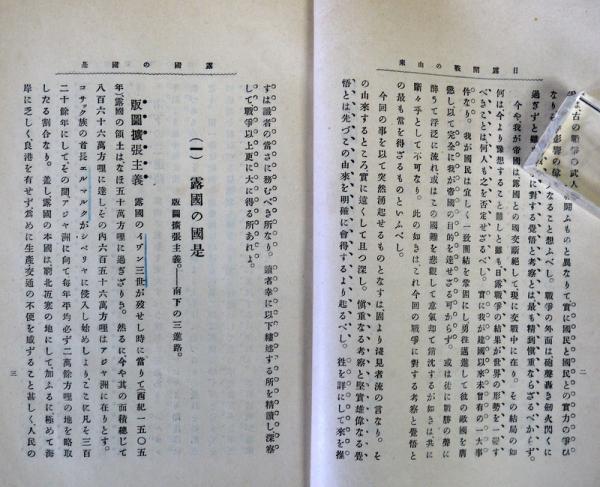 日露開戰の由來
二
過ぎずと雖
今や我が帝國は露國との國交斷絕して現に交戰中に在り。その結局の如
何は今より豫想すること難しと雖も日露戰爭の結果が世界の形勢を一變す
べきことは何人も之を否定せざるべし。實に我が建國以來未曾有の一大事
件なり。我が國民は宜しく一致團結を鞏固にし勇往邁進して彼の敵國を膺
懲し以て完全に我が帝國の目的を達せざる可からず。或は徒に戰勝の聲に
醉うて浮泛に流れ或はこの國難を悲觀して意氣却て銷沈するが如きは共に
斷々乎として不可なり。此の如きはこれ今回の戰爭に對する考察と覺悟と
の最も當を得ざるものといふべし。
今回の事を以て突然湧起せるものとなすは固より淺見者流の言なり。そ
の由來するところ實に遠くして且つ深し。愼重なる考察と堅實雄偉なる覺
悟とは先づこの由來を明確に會得するより起るべし。往を詳にして來を推
露國の國是
三
すは識者の當さに務むべき所なり。讀者幸に以下縷述する所を精讀し深察
して戰爭以上更に大に得る所あれよ。
(一) 露國の國是
版圖擴張主義。――南下の三進路。
版圖擴張主義 露國のイヴン三世が歿せし時に當りて(西紀一五〇五
年)露國の領土はなほ五十萬方哩に過ぎざりき。然るに今や其の面積總じて
八百六十六萬方哩に達しその內六百五十六萬方哩はアジヤ洲に在りとす。
コサック族の首長エルマルクがシベリヤに侵入し始めしよりここに凡そ三百
二十餘年にして、その間アジヤ洲に向て每年平均必ず二萬餘方哩の地を略取
したる割合なり。蓋し露國の本國は朔北冱寒の地にして加ふるに極めて海
岸に乏しく良港を有せず爲めに生產交通の不便を感ずること甚しく、人民の